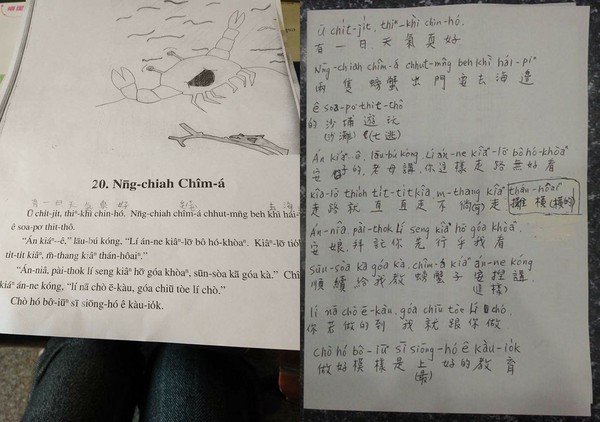 20. Nn̄g-chiah Chîm-á
有一日天氣真好
Ū chi̍t-ji̍t, thiⁿ-khì chin-hó. Nn̄g-chiah chîm-á chhut-mn̂g beh khì hái-
ê soa-po thit-thô.
“Án kiáⁿ-ê,” lāu-bú kóng, “Lí án-ne kiâⁿ-lō͘ bô hó-khòaⁿ. Kiâⁿ-lō͘ tio̍
ti̍t-ti̍t kiâⁿ, m̄-thang kiâⁿ thán-hôaiⁿ.”
“Án-niâ, pài-thok lí seng kiâⁿ hō͘ góa khòaⁿ, sūn-sòa kā góa kà.” Chî
kiáⁿ án-ne kóng, “lí nā chò ē-kàu, góa chiū tòe lí chò.”
Chò hó bô-iūⁿ sī siōng-hó ê kàu-io̍k.
Ū chi̍t-ji̍t, thiⁿ-khì chin-hó.
有一日,天氣真好
Nn̄g-chiah chîm-á chhut-mn̂g beh khì hái-piⁿ
兩隻螃蟹出門要去海邊
ê soa-po thit-thô
的沙埔遊玩
(沙灘) (七逃)
Án kiáⁿ-ê, lāu-bú kóng, Lí án-ne kiâⁿ-lō͘ bô hó-khòaⁿ
的,老母講,你這樣走路無好看
kiâ-lō thio̍h ti̍t-ti̍t kiâ m-thang kiâⁿ thán-hôaiⁿ
走路就直直走不倘走攤橫(橫的)
Án-niâ, pài-thok lí seng kiâⁿ hō͘ góa khòaⁿ
安娘拜託你先行乎我看
sūn-sòa kā góa kà, chîm-á kiáⁿ án-ne kóng
順續給我教螃蟹子安捏講
(這樣)
lí nā chò ē-kàu, góa chiū tòe lí chò,
你若做的到 我就跟你做
Chò hó bô-iūⁿ sī siōng-hó ê kàu-io̍k
做好模樣是上好的教育
(最)